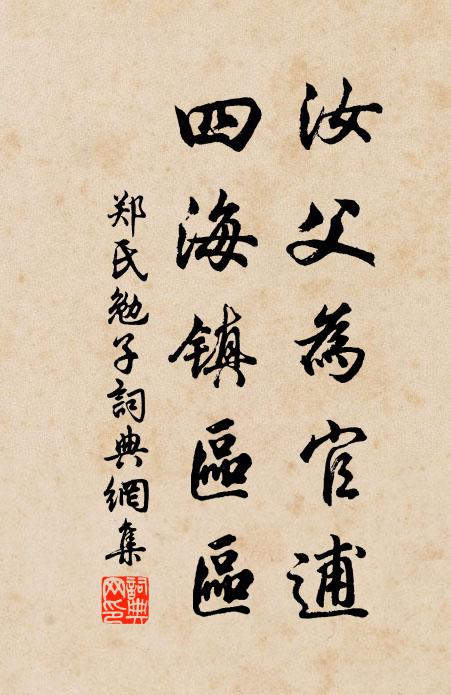 汝父為官逋
四海镇區區
郑氏勉子詞典網集
詞典